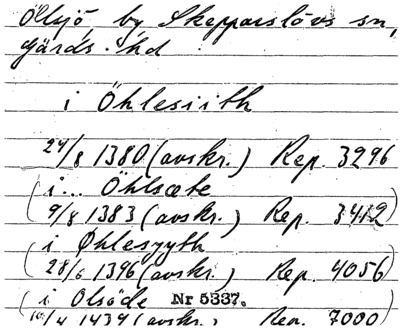 Ölsjö, by Skepparslövs sn,
Gärds hd
i Öhlesiith
24/8 1380 (avskr.) Rep. 3296
(i... Öhlsæte
9/8 1383 (avskr.) Rep. 3412)
(i Øhlesyyth
28/6 1396 (avskr.) Rep. 4056)
(i Olsöde Nr 5337.
1439 (avskr.) Rep. 7000)